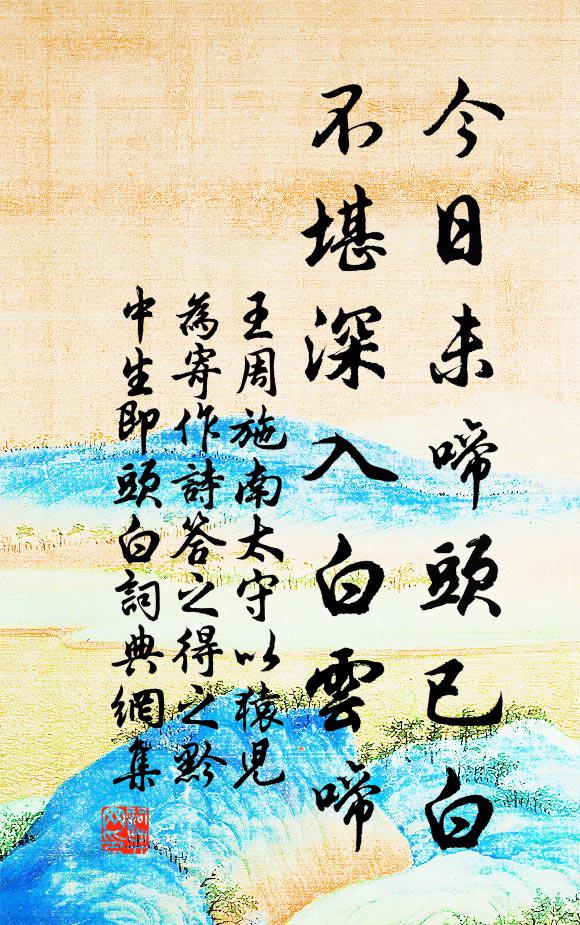 今日未啼頭已白
不堪深入白雲啼
王周施南太守以猿兒
為寄作詩答之得之黔
中生即頭白詞典網集